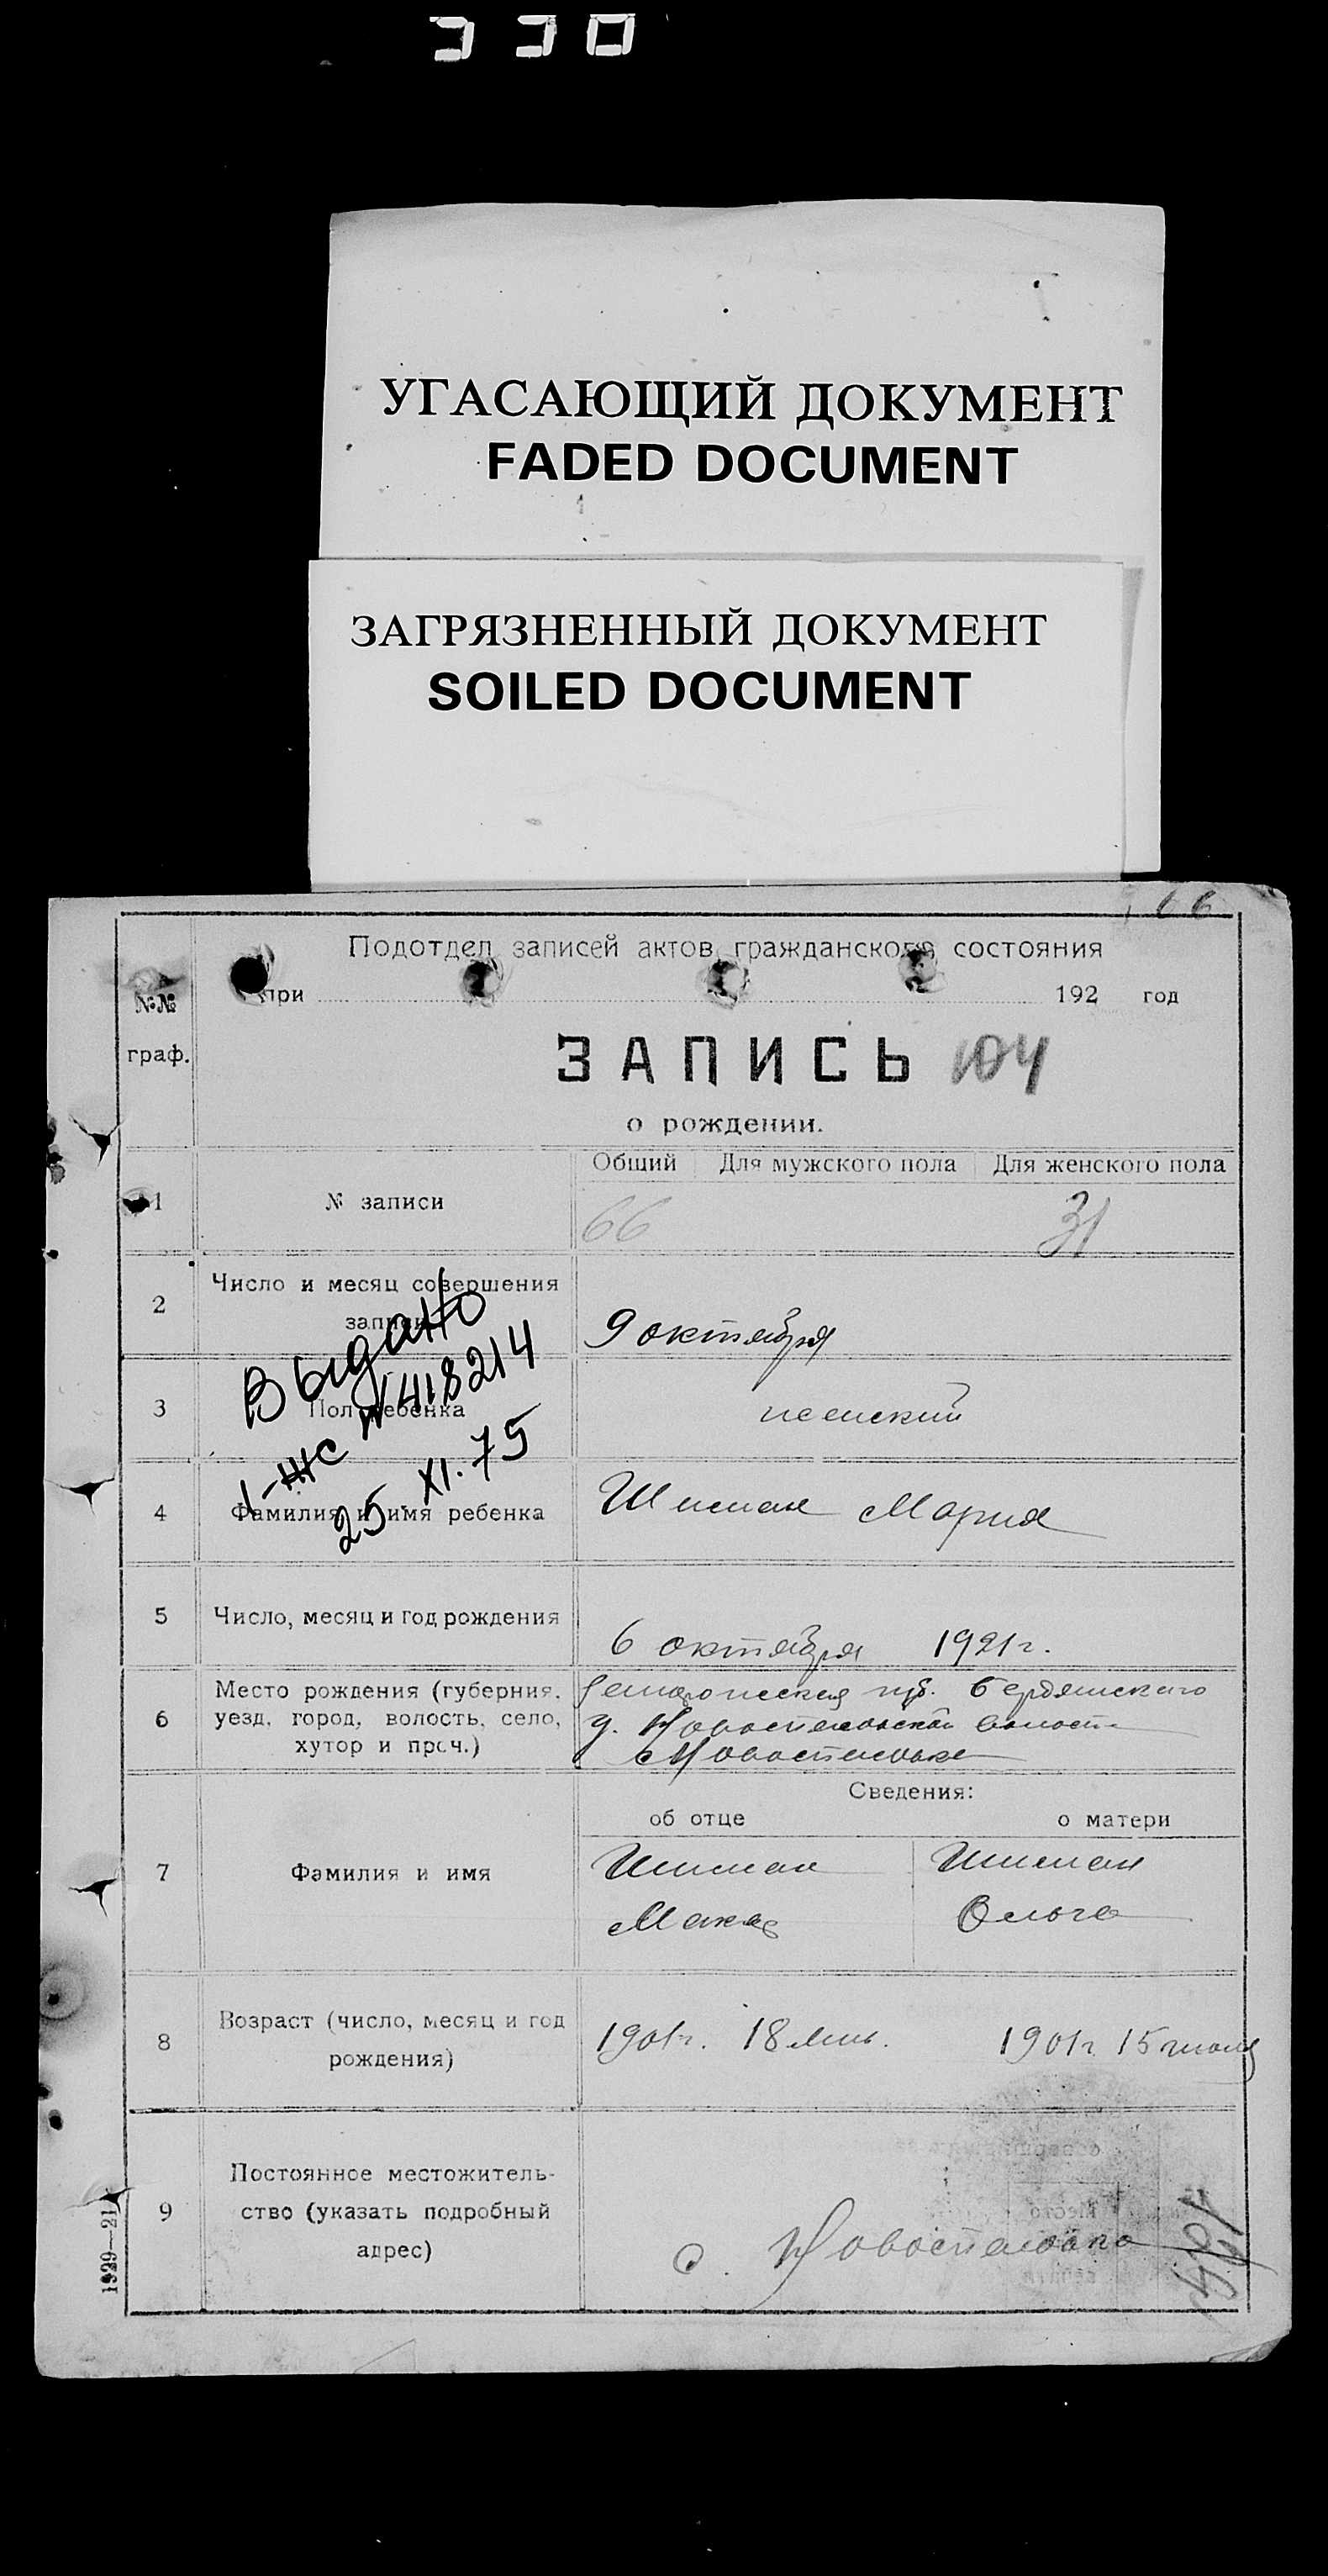 УГАСАЮЩИЙ ДОКУМЕНТ
FADED DOCUMENT
ЗАГРЯЗНЕННЫЙ ДОКУМЕНТ
SOILED DOCUMENT
66
Подотдел записей актов гражданского состояния
№№
при 192 год
граф.
ЗАПИСЬ 104
о рождении.
Общий Для мужского пола Для женского пола
1 № записи 66 31
2 Число и месяц совершения
записи 9 октября
3 Пол ребенка женский
Выдано
I-ЖС №418214
25 XI.75
4 Фамилия и имя ребенка Шишман Мария
5 Число, месяц и год рождения 6 октября 1921 г.
6 Место рождения (губерния, губ. Бердянского
уезд, город, волость, село, у. Новоспасовской волости
хутор и проч.) с Новоспасовке
Сведения:
об отце о матери
7 Фамилия и имя Шишман Шишман
Макар Ольга
8 Возраст (число, месяц и год
рождения) 1901 г. 18 1901 г 15 июля
9 Постоянное местожитель-
ство (указать подробный
адрес) с. Новоспасовка
1939—21